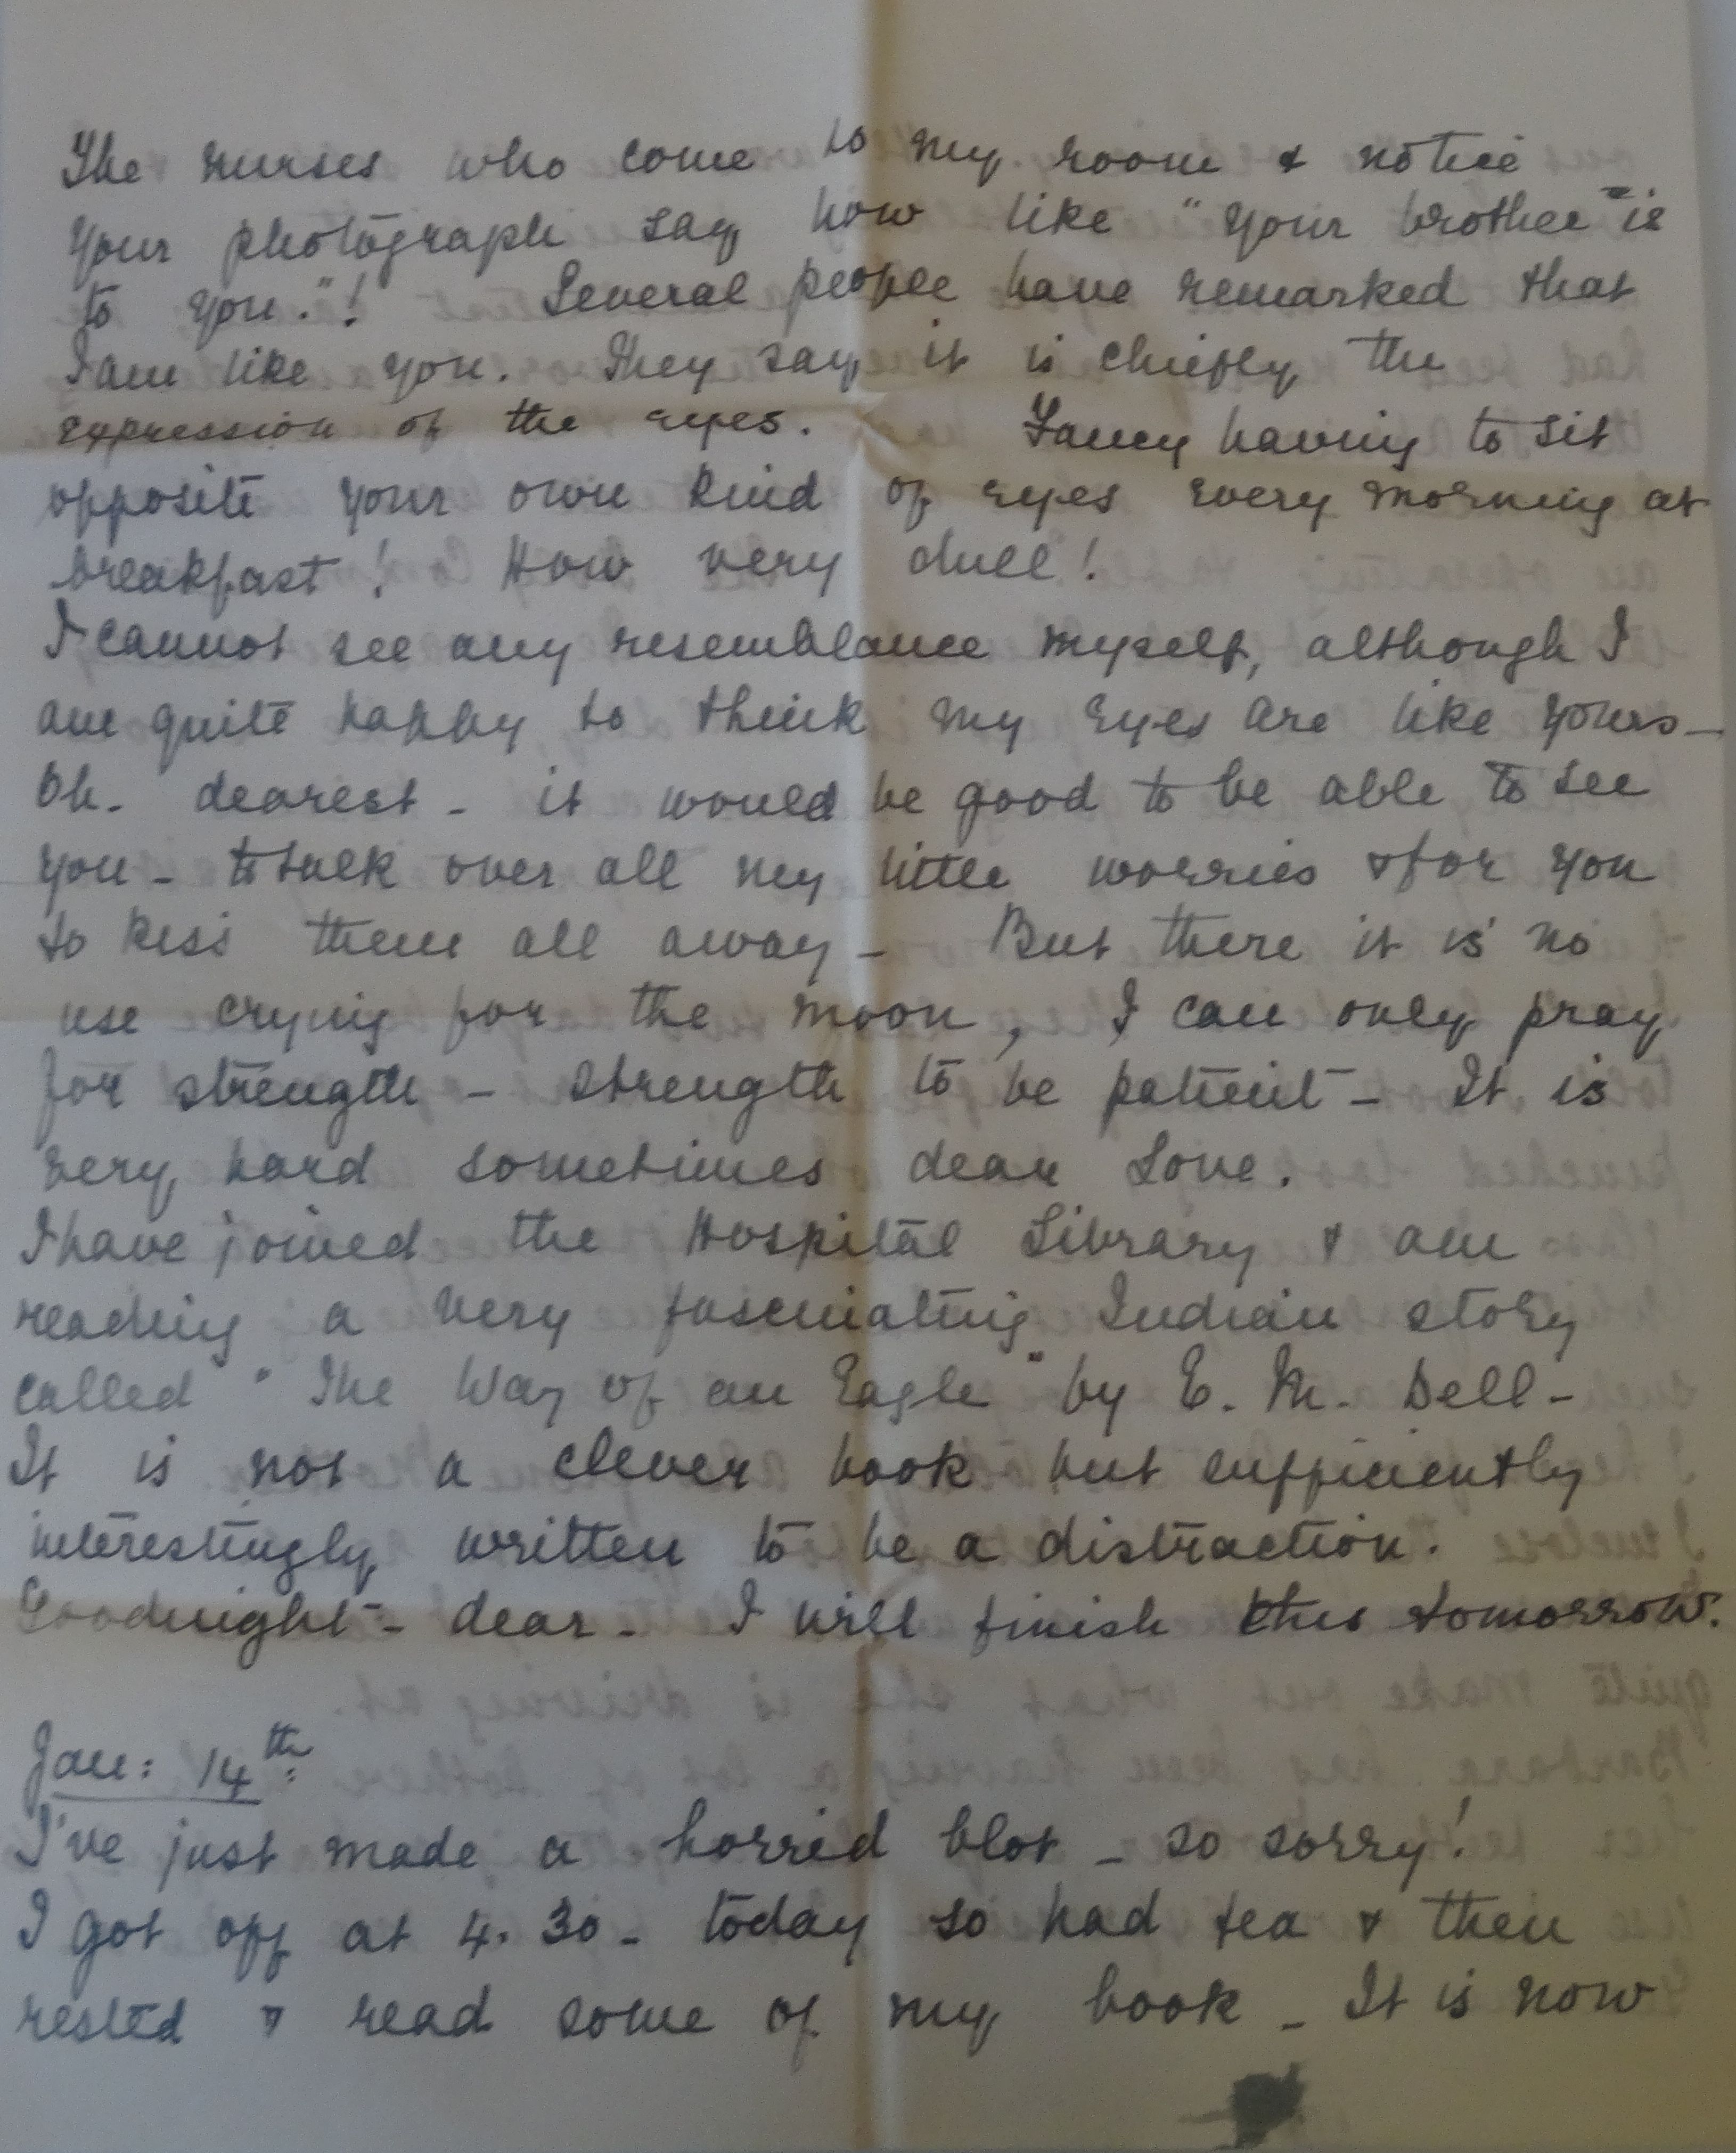 The nurses who come to my room & notice
your photograph say how like "your brother" is
to you."! Several people have remarked that
I am like you. They say it is chiefly the
expression of the eyes. Fancy having to sit
opposite your own kind of eyes every morning at
breakfast! How very dull!
I cannot see any resemblance myself, although I
am quite happy to think my eyes are like yours –
Oh. dearest – it would be good to be able to see
you – to talk over all my little worries & for you
to kiss them all away – But there it is no
use crying for the moon, I can only pray
for strength – strength to be patient – It is
very hard sometimes dear Love.
I have joined the Hospital Library & am
reading a very fascinating Indian story
called "The Way of an Eagle" by E. M. Dell –
It is not a clever book but sufficiently
interestingly written to be a distraction.
Goodnight – dear – I will finish this tomorrow.
Jan: 14th:
I've just made a horrid blot – so sorry!
I got off at 4.30 – today so had tea & then
rested & read some of my book – It is now